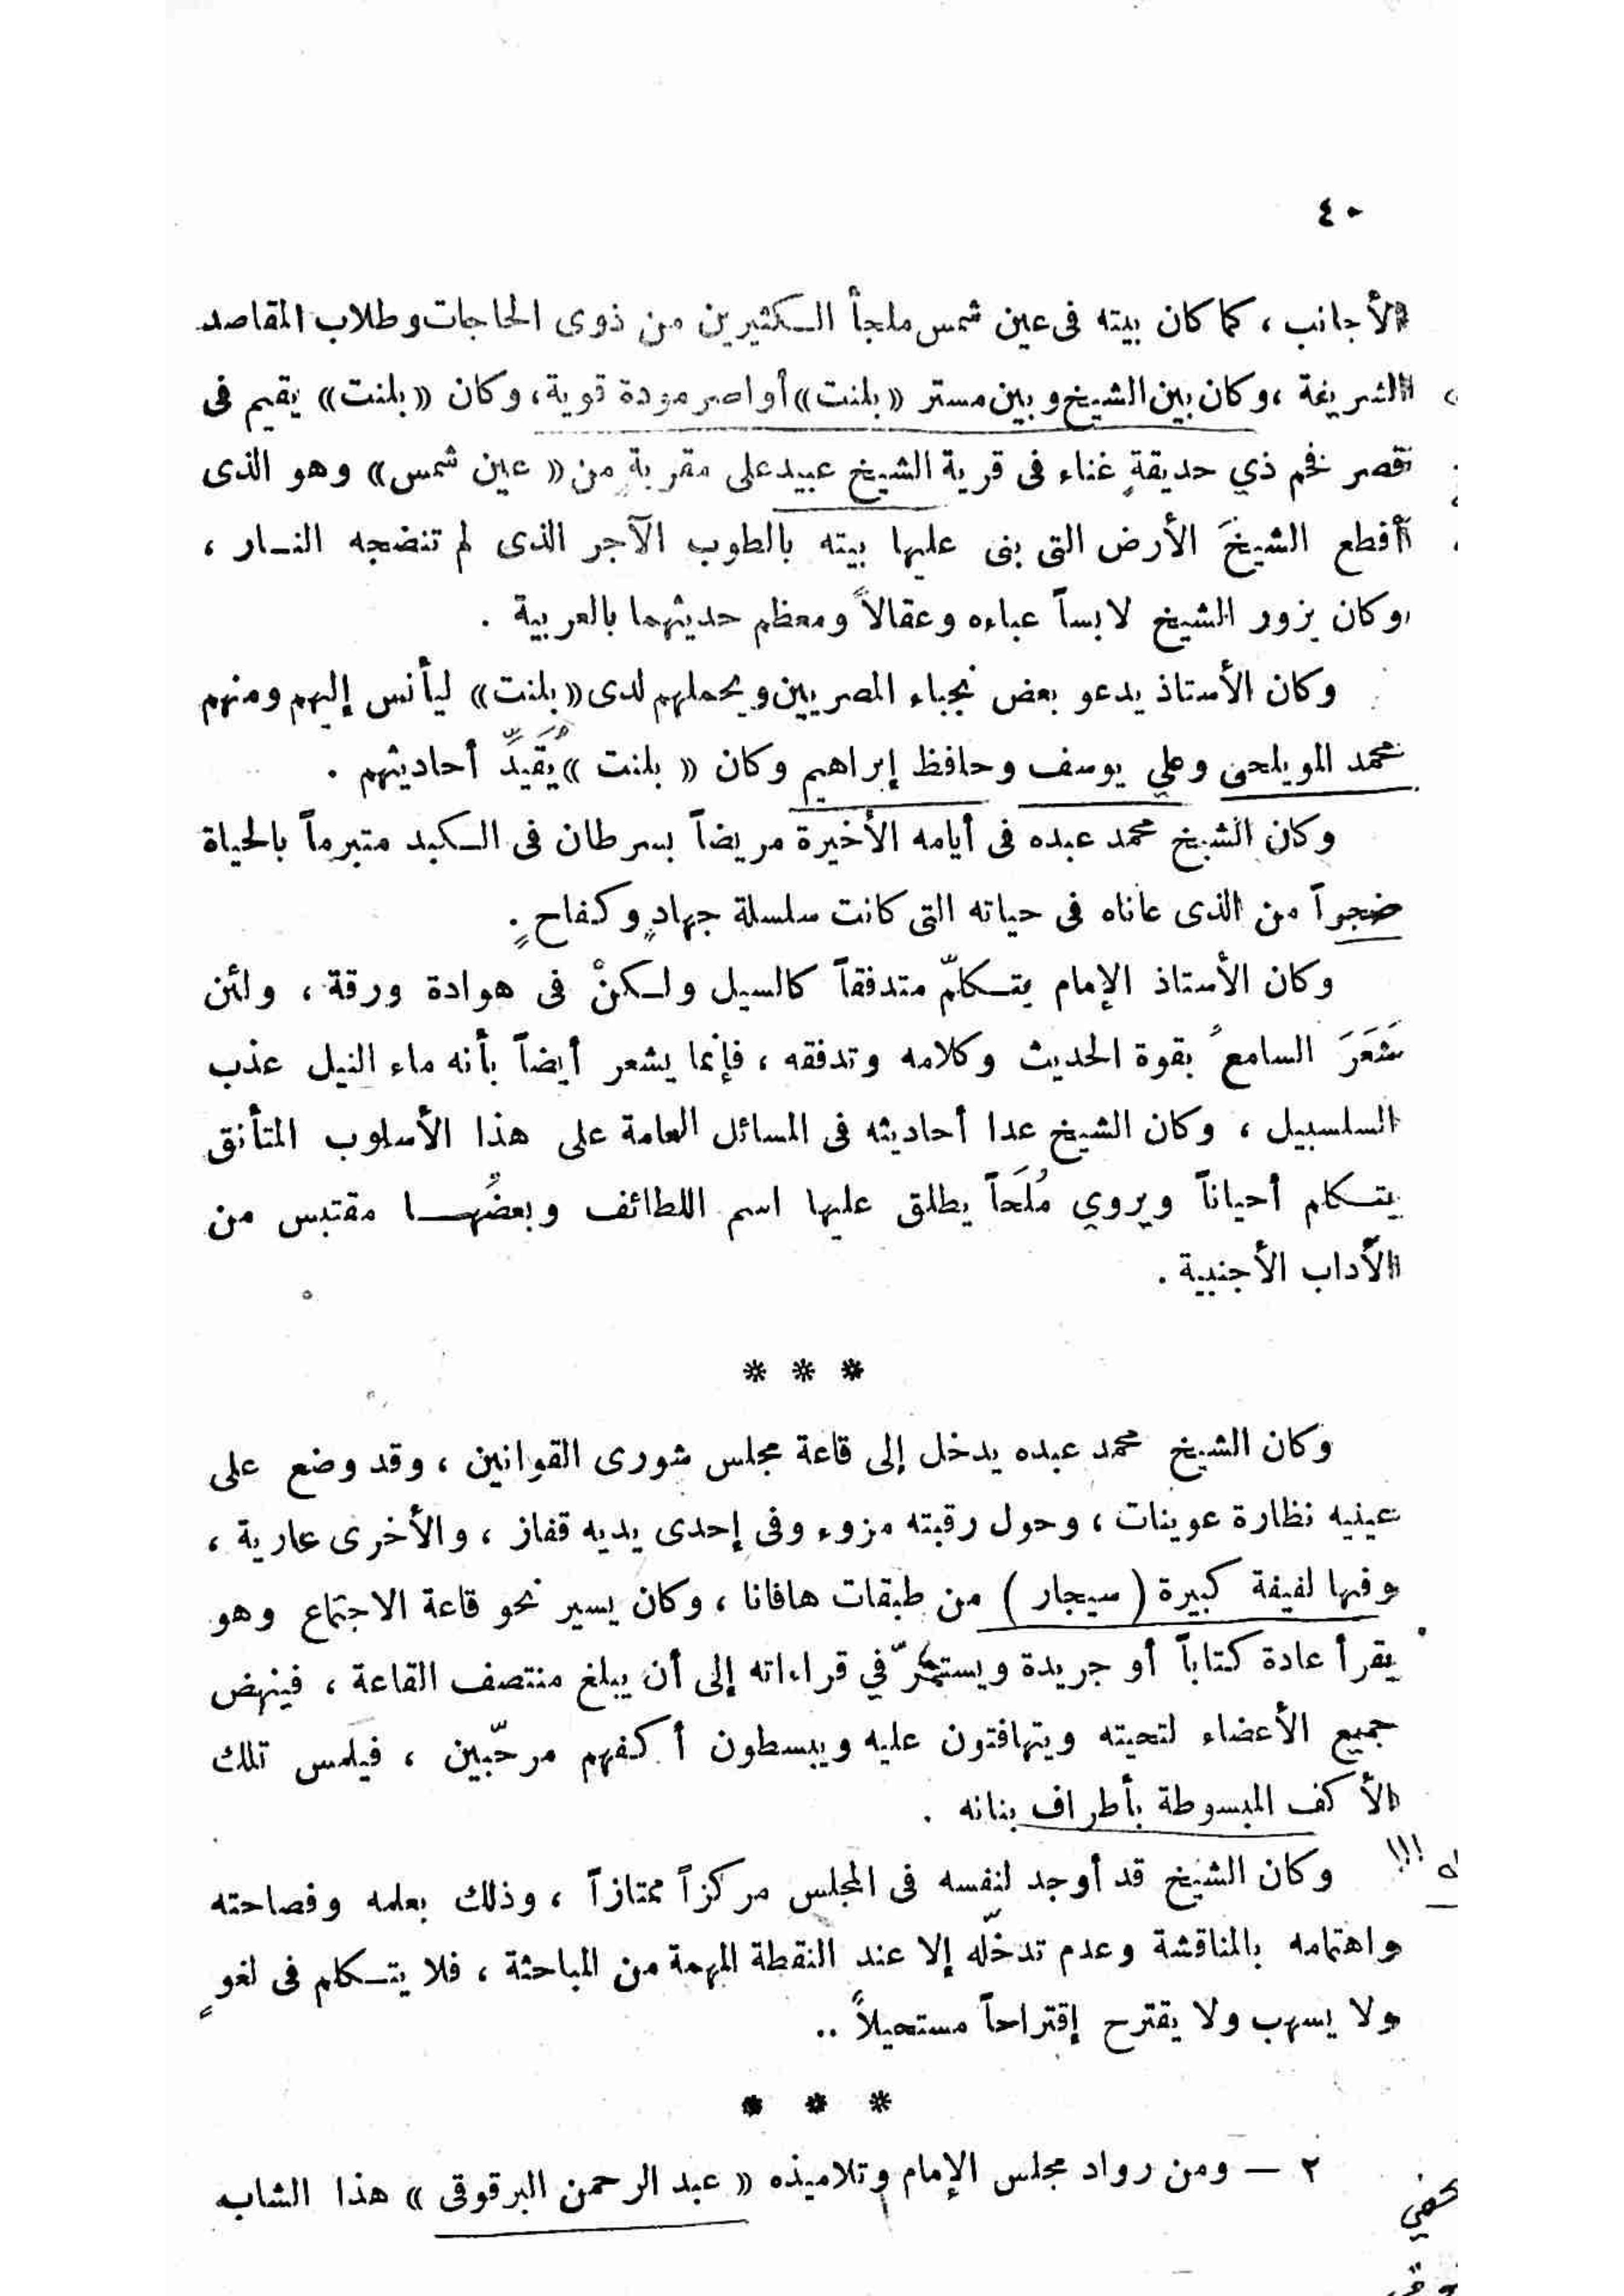 ٤٠
الأجانب ، كما كان بيته فى عين شمس ملجأ الكثيرين من ذوى الحاجات وطلاب المقاصد
الشريفة ، وكان بين الشيخ وبين مستر « بلنت » أواصر مودة قوية ، وكان « بلنت » يقيم فى
قصر فخم ذي حديقةٍ غناء فى قرية الشيخ عبيد على مقربةٍ من « عين شمس » وهو الذى
أقطع الشيخَ الأرض التى بنى عليها بيته بالطوب الآجر الذى لم تنضجه النار ،
وكان يزور الشيخ لابساً عباءه وعقالاً ومعظم حديثهما بالعربية .
وكان الأستاذ يدعو بعض نجباء المصريين ويحملهم لدى « بلنت » ليأنس إليهم ومنهم
محمد المويلحى وعلي يوسف وحافظ إبراهيم وكان « بلنت » يُقَيِّد أحاديثهم .
وكان الشيخ محمد عبده فى أيامه الأخيرة مريضاً بسرطان فى الكبد متبرماً بالحياة
ضجراً من الذى عاناه فى حياته التى كانت سلسلة جهادٍ وكفاحٍ .
وكان الأستاذ الإمام يتكلّم متدفقاً كالسيل ولكنْ فى هوادة ورقة ، ولئن
شَعَرَ السامعُ بقوة الحديث وكلامه وتدفقه ، فإنما يشعر أيضاً بأنه ماء النيل عذب
السلسبيل ، وكان الشيخ عدا أحاديثه فى المسائل العامة على هذا الأسلوب المتأنق
يتكلم أحياناً ويروي مُلَحاً يطلق عليها اسم اللطائف وبعضُها مقتبس من
الآداب الأجنبية .
* * *
وكان الشيخ محمد عبده يدخل إلى قاعة مجلس شورى القوانين ، وقد وضع على
عينيه نظارة عوينات ، وحول رقبته مزوء وفى إحدى يديه قفاز ، والأخرى عارية ،
وفيها لفيفة كبيرة ( سيجار ) من طبقات هافانا ، وكان يسير نحو قاعة الاجتماع وهو
يقرأ عادة كتاباً أو جريدة ويستمرّ في قراءاته إلى أن يبلغ منتصف القاعة ، فينهض
جميع الأعضاء لتحيته ويتهافتون عليه ويبسطون أكفهم مرحّبين ، فيلمس تلك
الأكف المبسوطة بأطراف بنانه .
!!!
وكان الشيخ قد أوجد لنفسه فى المجلس مركزاً ممتازاً ، وذلك بعلمه وفصاحته
واهتمامه بالمناقشة وعدم تدخّله إلا عند النقطة المهمة من المباحثة ، فلا يتكلم فى لغوٍ
ولا يسهب ولا يقترح إقتراحاً مستحيلاً ..
* * *
٢ — ومن رواد مجلس الإمام وتلاميذه « عبد الرحمن البرقوقى » هذا الشاب